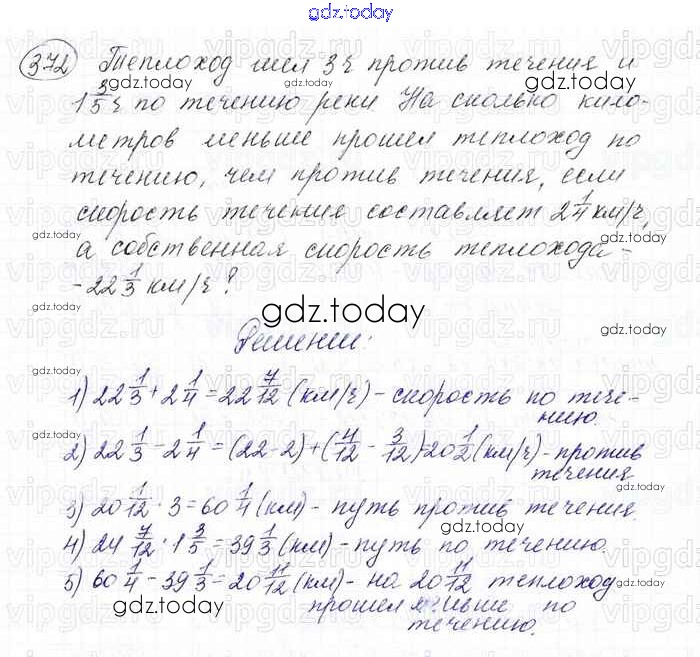 gdz.today
372 Теплоход шел 3 ч против течения и
1 3/5 ч по течению реки На сколько кило-
метров меньше прошел теплоход по
течению, чем против течения, если
скорость течения составляет 2 1/4 км/ч,
а собственная скорость теплохода -
- 22 1/3 км/ч?
gdz.today
Решение:
1) 22 1/3 + 2 1/4 = 22 7/12 (км/ч) - скорость по тече-
нию.
2) 22 1/3 - 2 1/4 = (22-2) + (4/12 - 3/12) = 20 1/2 (км/ч) - против
течения
3) 20 1/12 · 3 = 60 1/4 (км) - путь против течения.
4) 24 7/12 · 1 3/5 = 39 1/3 (км) - путь по течению.
5) 60 1/4 - 39 1/3 = 20 11/12 (км) - на 20 11/12 теплоход
прошел меньше по
течению.
gdz.today